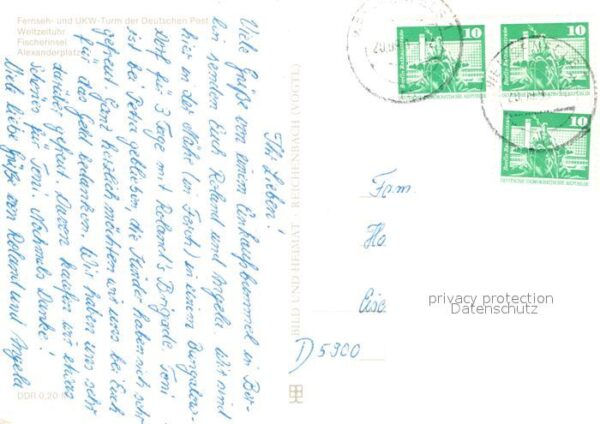 Fernseh- und UKW-Turm der Deutschen Post
Weltzeituhr
Fischerinsel
Alexanderplatz
Ihr Lieben!
Viele Grüße von einem Einkaufsbummel in Ber-
lin senden Euch Roland und Angela. Wir sind
hier in der Nähe (in Forsch) in einem Bungalow-
dorf für 3 Tage mit Roland's Brigade. Toni
ist bei Petra geblieben, die Kinder haben sich sehr
gefreut. Ganz herzlich möchten wir uns bei Euch
für das Geld bedanken. Wir haben uns sehr
darüber gefreut. Davon kaufen wir etwas
Schönes für Toni. Nochmals Danke!
Viele liebe Grüße von Roland und Angela
DDR 0,20 M
BILD UND HEIMAT · REICHENBACH (VOGTL)
10
10
10
Berlin, Rathausstraße
DEUTSCHE DEMOKRATISCHE REPUBLIK
DEUTSCHE DEMOKRATISCHE REPUBLIK
DEUTSCHE DEMOKRATISCHE REPUBLIK
Fam
Ho
D 5900
privacy protection
Datenschutz